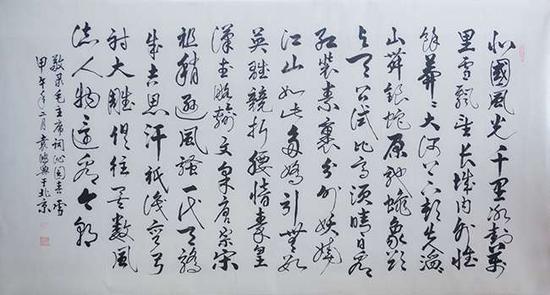 北國風光千里冰封萬
里雪飄望長城內外惟
餘莽〻大河上下頓失滔〻
山舞銀蛇原馳蠟象欲
與天公試比高須晴日看
紅裝素裹分外妖嬈
江山如此多嬌引無數
英雄競折腰惜秦皇
漢武略輸文采唐宗宋
祖稍遜風騷一代天驕
成吉思汗祇識彎弓
射大雕俱往矣數風
流人物還看今朝
敬录毛主席詞沁園春雪
甲午年二月袁于北京